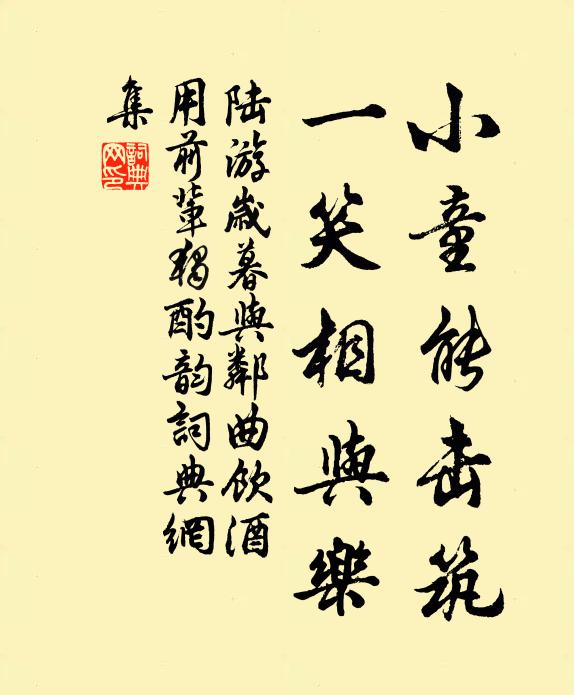 小童能击筑
一笑相與樂
陆游歲暮與鄰曲饮酒
用前輩獨酌韵詞典網
集
詞典网印